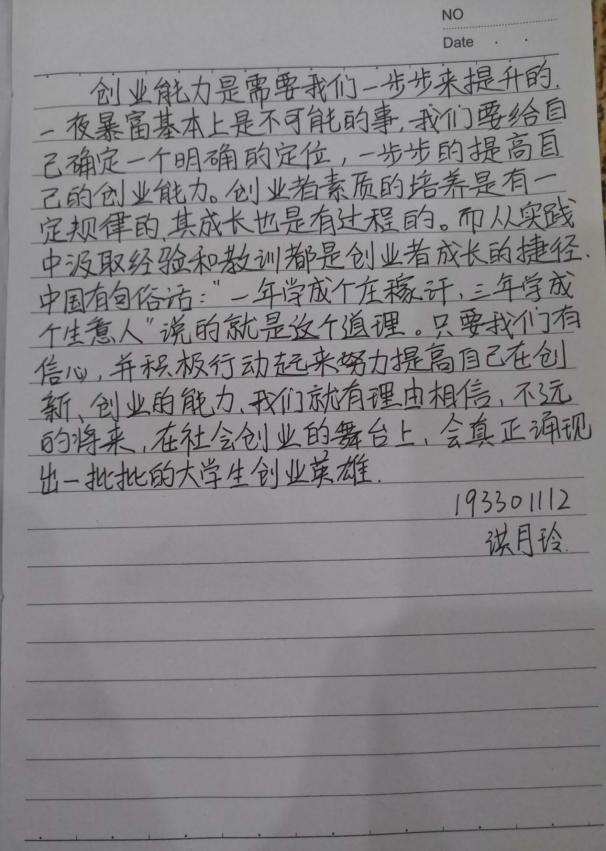 NO
Date
创业能力是需要我们一步步来提升的.
一夜暴富基本上是不可能的事,我们要给自
己确定一个明确的定位,一步步的提高自
己的创业能力。创业者素质的培养是有一
定规律的,其成长也是有过程的。而从实践
中汲取经验和教训都是创业者成长的捷径.
中国有句俗话:"一年学成个庄稼汗,三年学成
个生意人"说的就是这个道理。只要我们有
信心,并积极行动起来努力提高自己在创
新、创业的能力,我们就有理由相信,不远
的将来,在社会创业的舞台上,会真正诵现
出一批批的大学生创业英雄.
193301112
洪月玲